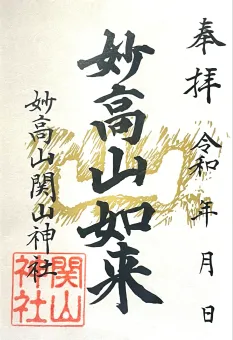 奉拝
令和 年 月 日
妙高山如来
妙高山関山神社
関山神社